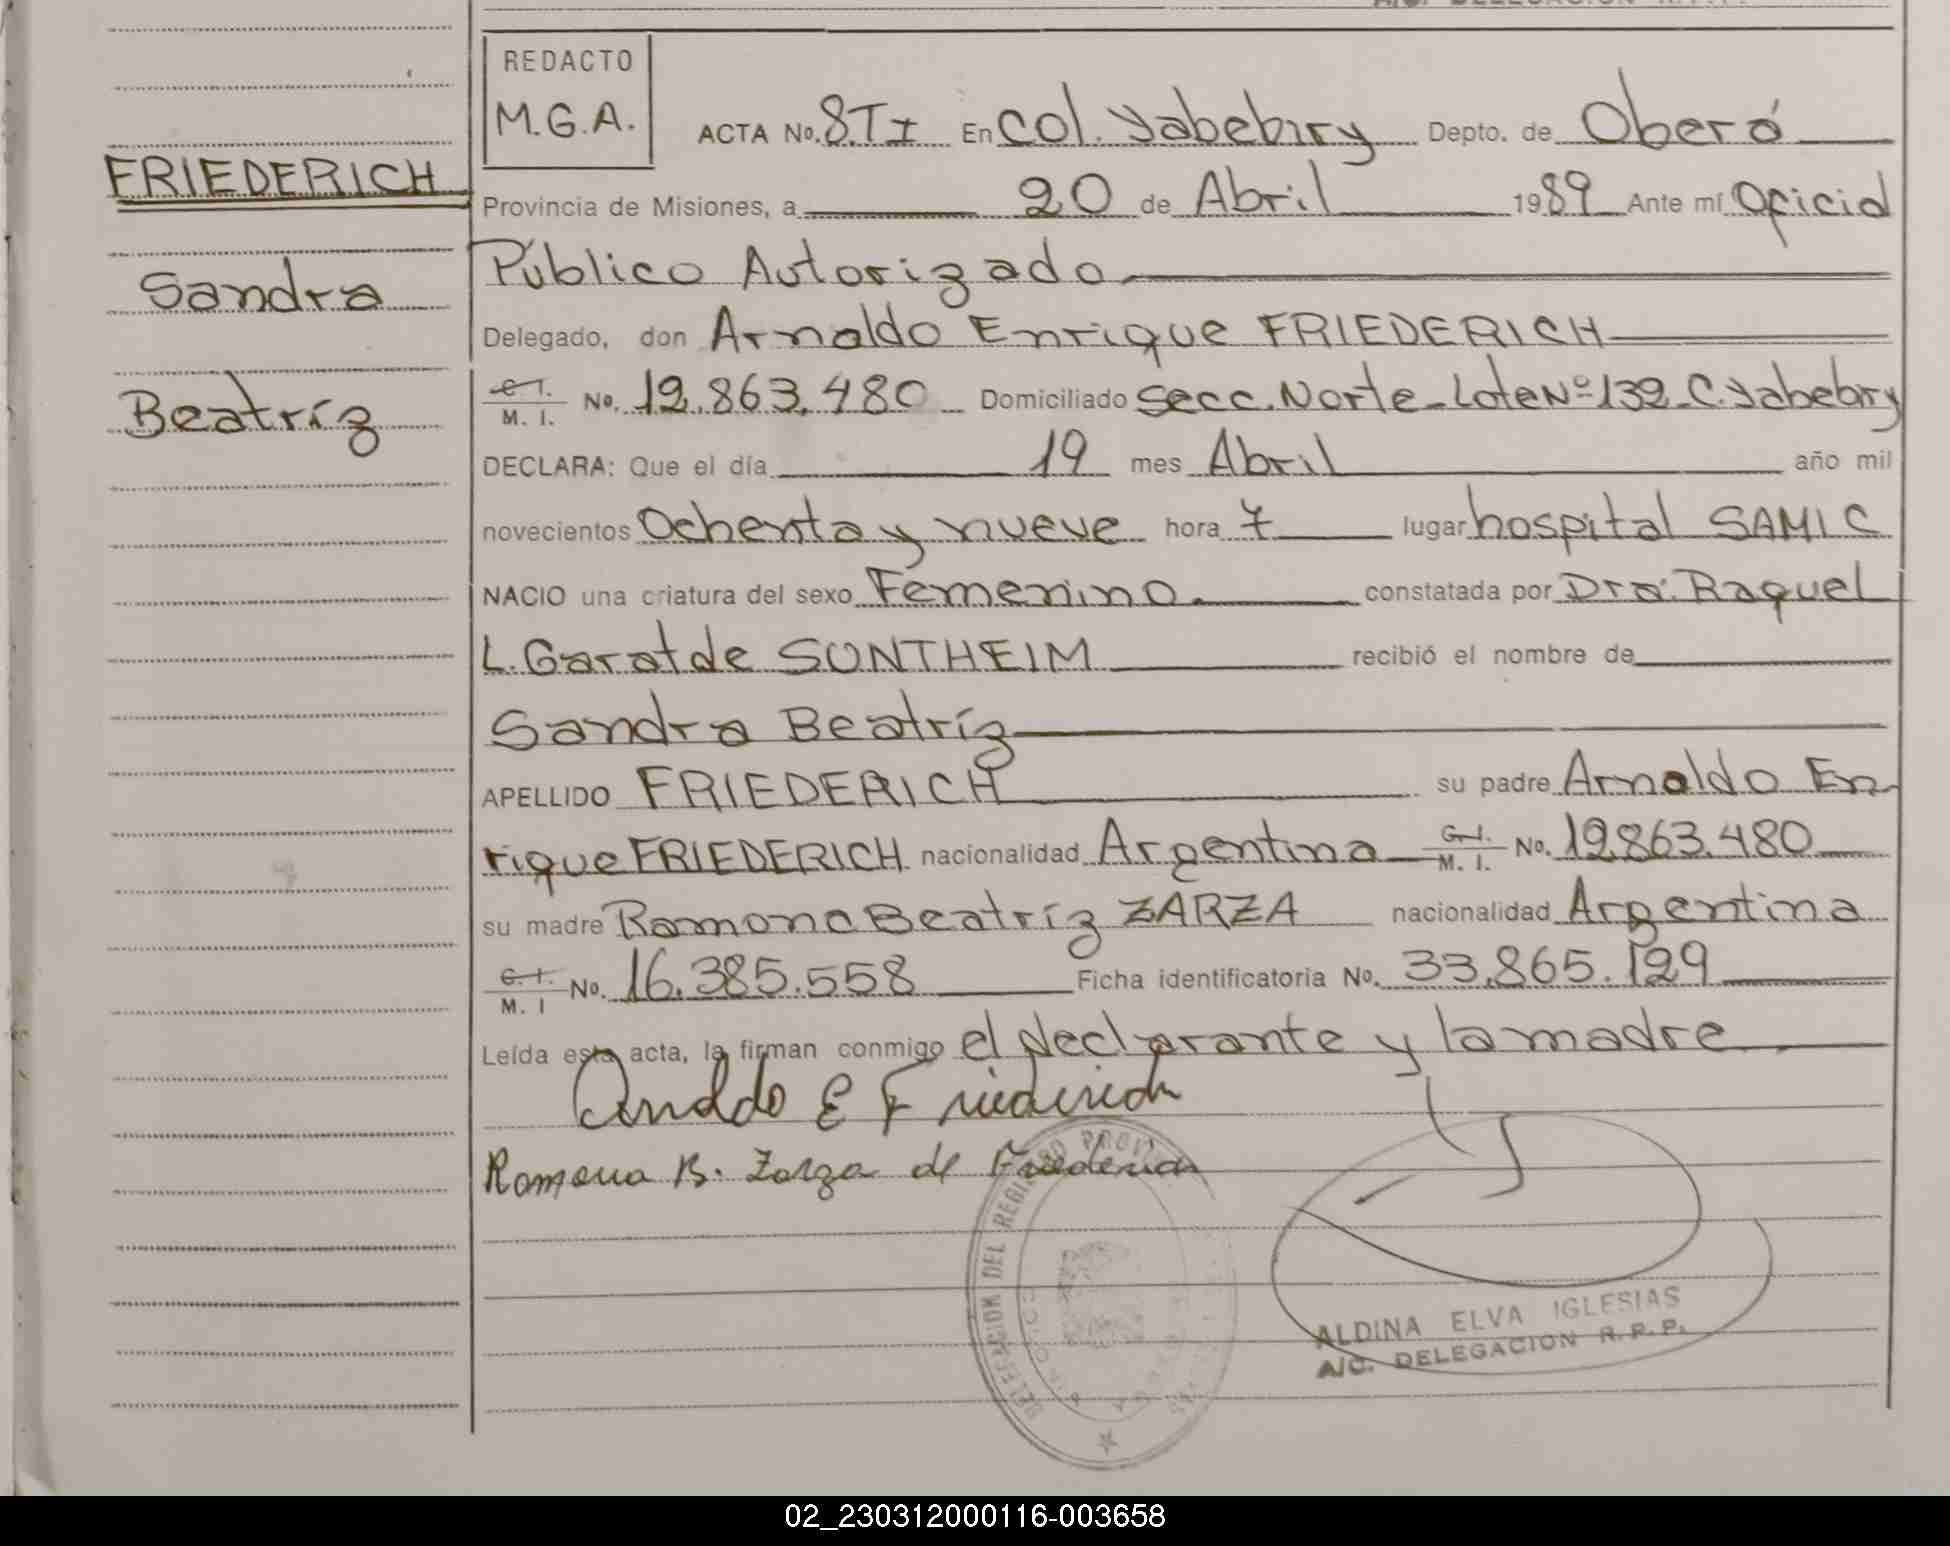 REDACTO
M.G.A.
ACTA No. 8.TI En Col. Yabebiry Depto. de Oberá
FRIEDERICH
Provincia de Misiones, a 20 de Abril 1989 Ante mí Oficial
Público Autorizado
Sandra
Delegado, don Arnaldo Enrique FRIEDERICH
Beatríz
C. I. M. I. No. 12.863.480 Domiciliado Secc. Norte-Lote Nº 132-C. Yabebiry
DECLARA: Que el día 19 mes Abril año mil
novecientos Ochenta y nueve hora 7 lugar hospital SAMIC
NACIO una criatura del sexo Femenino constatada por Dra. Raquel
L. Garat de SONTHEIM recibió el nombre de
Sandra Beatríz
APELLIDO FRIEDERICH su padre Arnaldo En
rique FRIEDERICH nacionalidad Argentina C. I. M. I. No. 12.863.480
su madre Ramona Beatríz ZARZA nacionalidad Argentina
C. I. M. I No. 16.385.558 Ficha identificatoria No. 33.865.129
Leída esta acta, la firman conmigo el declarante y la madre
Arnaldo E Friederich
Ramona B. Zarza de Friederich
ALDINA ELVA IGLESIAS
A/C. DELEGACION R.P.P.
02_230312000116-003658